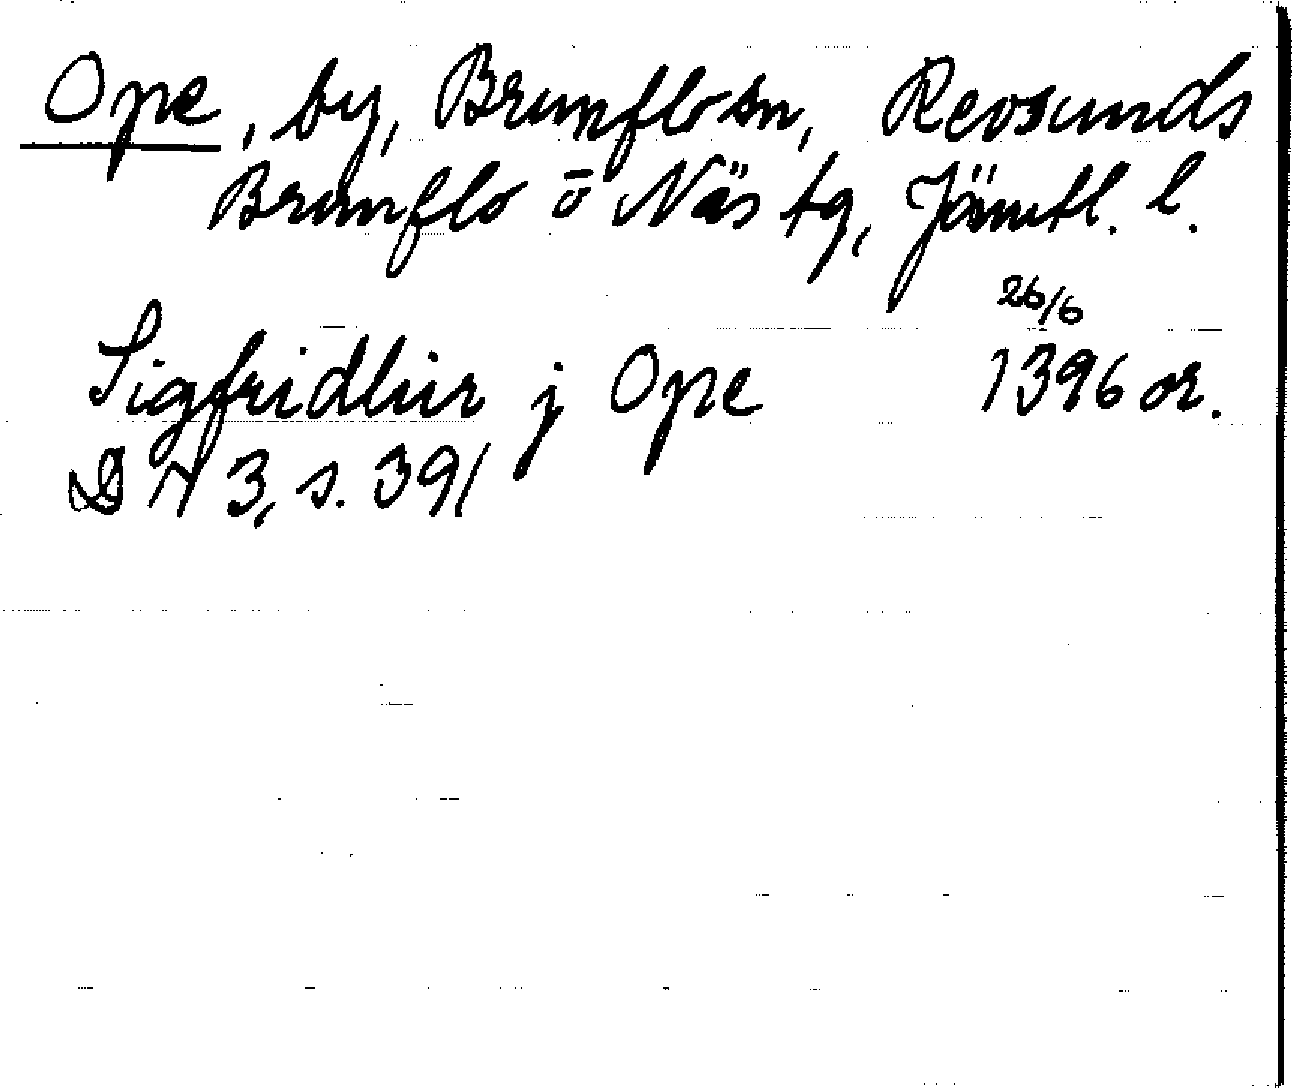 Ope, by, Brunflo sn, Revsunds
Brunflo o Näs tg, Jämtl. l.
26/6
Sigfridhur j Ope 1396 or.
DN 3, s. 391